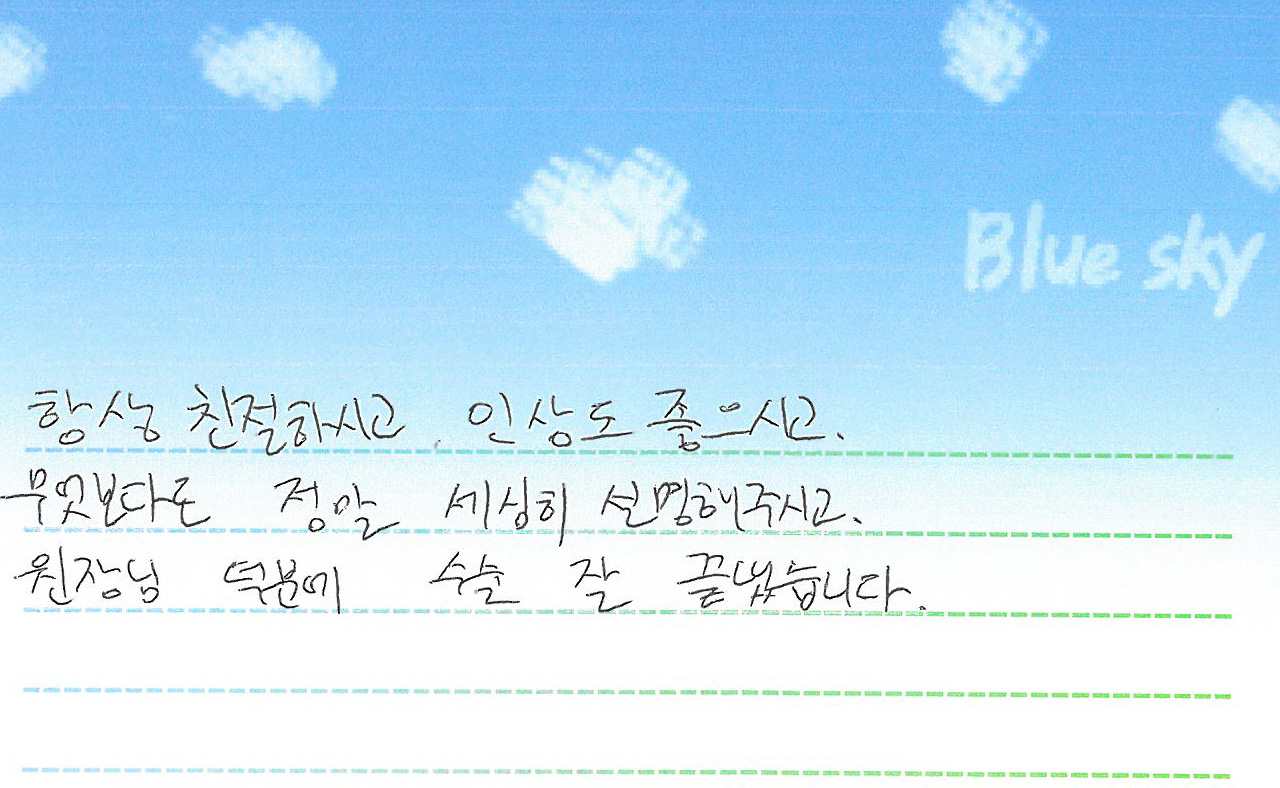 Blue sky
항상 친절하시고, 인상도 좋으시고.
무엇보다도 정말 세심히 설명해주시고.
원장님 덕분에 수술 잘 끝냈습니다.